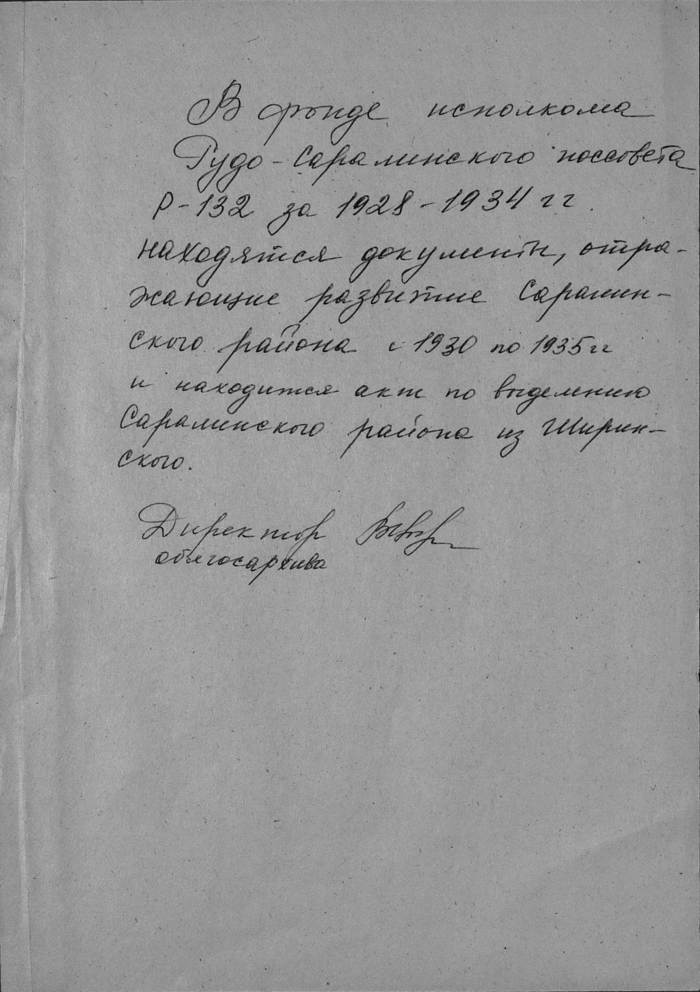 В фонде исполкома
Рудо-Саралинского поссовета
Р-132 за 1928-1934 гг.
находятся документы, отра-
жающие развитие Саралин-
ского района с 1930 по 1935 гг
и находится акт по выделению
Саралинского района из Ширин-
ского.
Директор
облгосархива